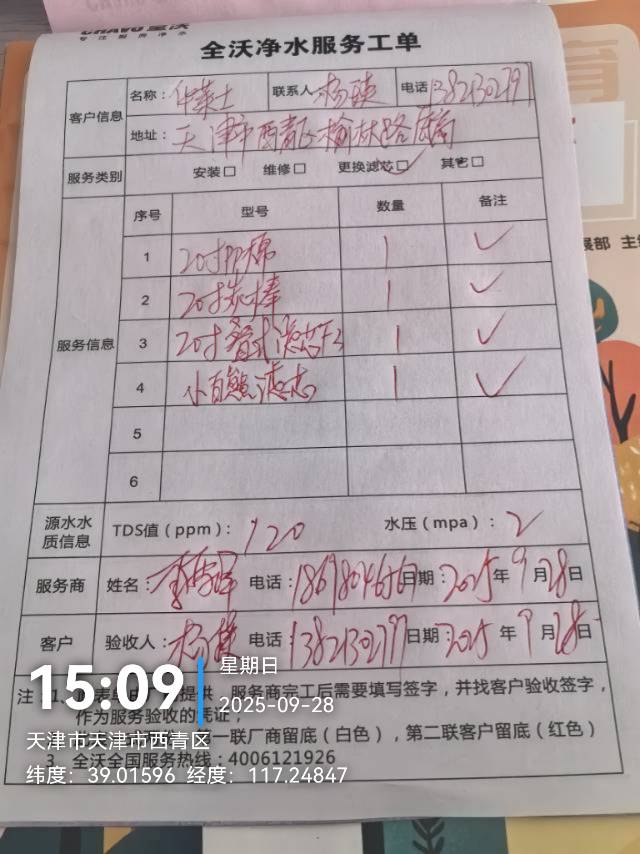 CHAVO全沃
专注厨房净水
全沃净水服务工单
客户信息 名称: 华莱士 联系人 杨 电话
地址: 天津市西青区榆林路店
服务类别 安装□ 维修□ 更换滤芯□✓ 其它□
服务信息 序号 型号 数量 备注
1 20寸PP棉 1 ✓
2 20寸炭棒 1 ✓
3 20寸 滤芯 1 ✓
4 小百 滤芯 1 ✓
5
6
源水水质信息 TDS值(ppm): 120 水压(mpa): 2
服务商 姓名: 李 电话: 日期: 2025年9月28日
客户 验收人: 杨 电话 日期: 2025年9月28日
服务商完工后需要填写签字,并找客户验收签字,
作为服务验收的凭证,
一联厂商留底(白色),第二联客户留底(红色)
3、全沃全国服务热线:4006121926
展部 主
育
15:09
星期日
2025-09-28
天津市天津市西青区
纬度: 39.01596 经度: 117.24847